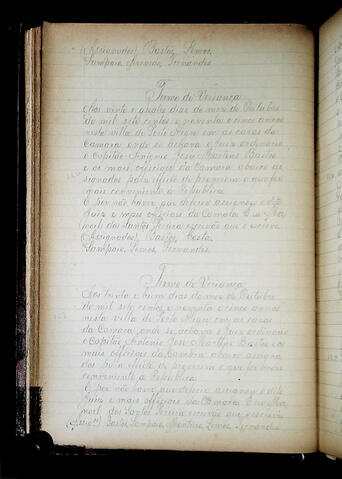 (Assignados) Bastos, Lemos,
Sampaio, Fernandes
Termo de Veriança
Aos vinte e quatro dias do mez de Outubro
do mil sete centos e noventa e cinco annos
nesta villa de Porto Alegre em as casas da
Camara onde se achava o Juiz ordinario
o Capitão Antonio José Martins Bastos
e os mais officiaes da Camara abaixo as-
signados para effeito de proverem o que for
mais conveniente a Republica.
E por não haver que deferir assignou o dito
Juiz e mais officiaes da Camara. Eu Ma-
noel dos Santos Pereira escrivão que o escrevi
(Assignados) Bastos, Costa,
Sampaio, Lemos, Fernandes.
Termo de Veriança
Aos trinta e hum dias do mez de Outubro
do mil sete centos e noventa e cinco annos
nesta villa de Porto Alegre em as casas
da Camara, onde se achava o Juiz ordinario
o Capitão Antonio José Martins Bastos e os
mais officiaes da Camara abaixo assigna-
dos para effeito de proverem o que for mais
conveniente a Republica.
E por não haver que deferir assignou o dito
Juiz e mais officiaes da Camara. Eu Ma-
noel dos Santos Pereira escrivão que o escrevi
Bastos, Sampaio, Lemos, Fernandes